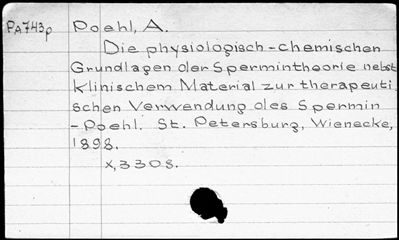 PA743p Poehl, A.
Die physiologisch-chemischen
Grundlagen der Spermintheorie nebst
klinischem Material zur therapeuti
schen Verwendung des Spermin
-Poehl. St. Petersburg, Wienecke,
1898.
x,330s.